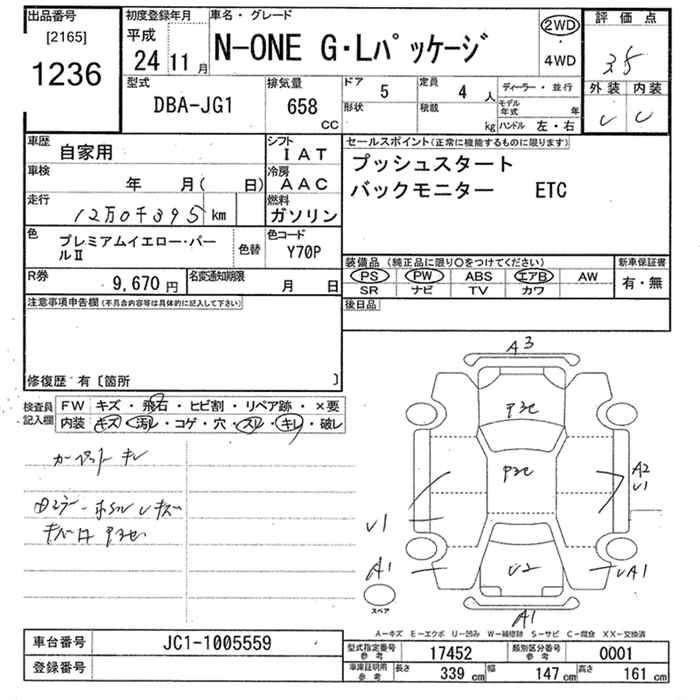 出品番号
[2165]
1236
初度登録年月
平成
24 11 月
車名・グレード
N-ONE G・Lパッケージ
2WD
・
4WD
評価点
3.5
外装 内装
型式
DBA-JG1
排気量
658
CC
ドア
5
形状
定員
4 人
積載
kg
ディーラー・並行
モデル年式 年
ハンドル 左・右
車歴
自家用
シフト
IAT
車検
年 月( 日)
冷房
AAC
走行
12万0千395 km
燃料
ガソリン
色
プレミアムイエロー・パールII
色替
色コード
Y70P
R券
9,670 円
名変通知期限
月 日
セールスポイント(正常に機能するものに限ります)
プッシュスタート
バックモニター ETC
装備品 (純正品に限り○をつけてください)
PS PW ABS エアB AW
SR ナビ TV カワ
新車保証書
有・無
後日品
注意事項申告欄(不具合内容等は具体的に記入して下さい)
修復歴 有〔箇所 〕
検査員記入欄
FW キズ・飛石・ヒビ割・リペア跡・×要
内装 キズ・汚レ・コゲ・穴・スレ・キレ・破レ
カーペット キレ
A3
P3C
P3C
A2
U1
U1
A1
U2
UA1
A1
スペア
A―キズ E―エクボ U―凹み W―補修跡 S―サビ C―腐食 XX―交換済
車台番号 JC1-1005559
登録番号
型式指定番号 参考 17452
類別区分番号 参考 0001
車庫証明用 参考 長さ 339 cm 幅 147 cm 高さ 161 cm